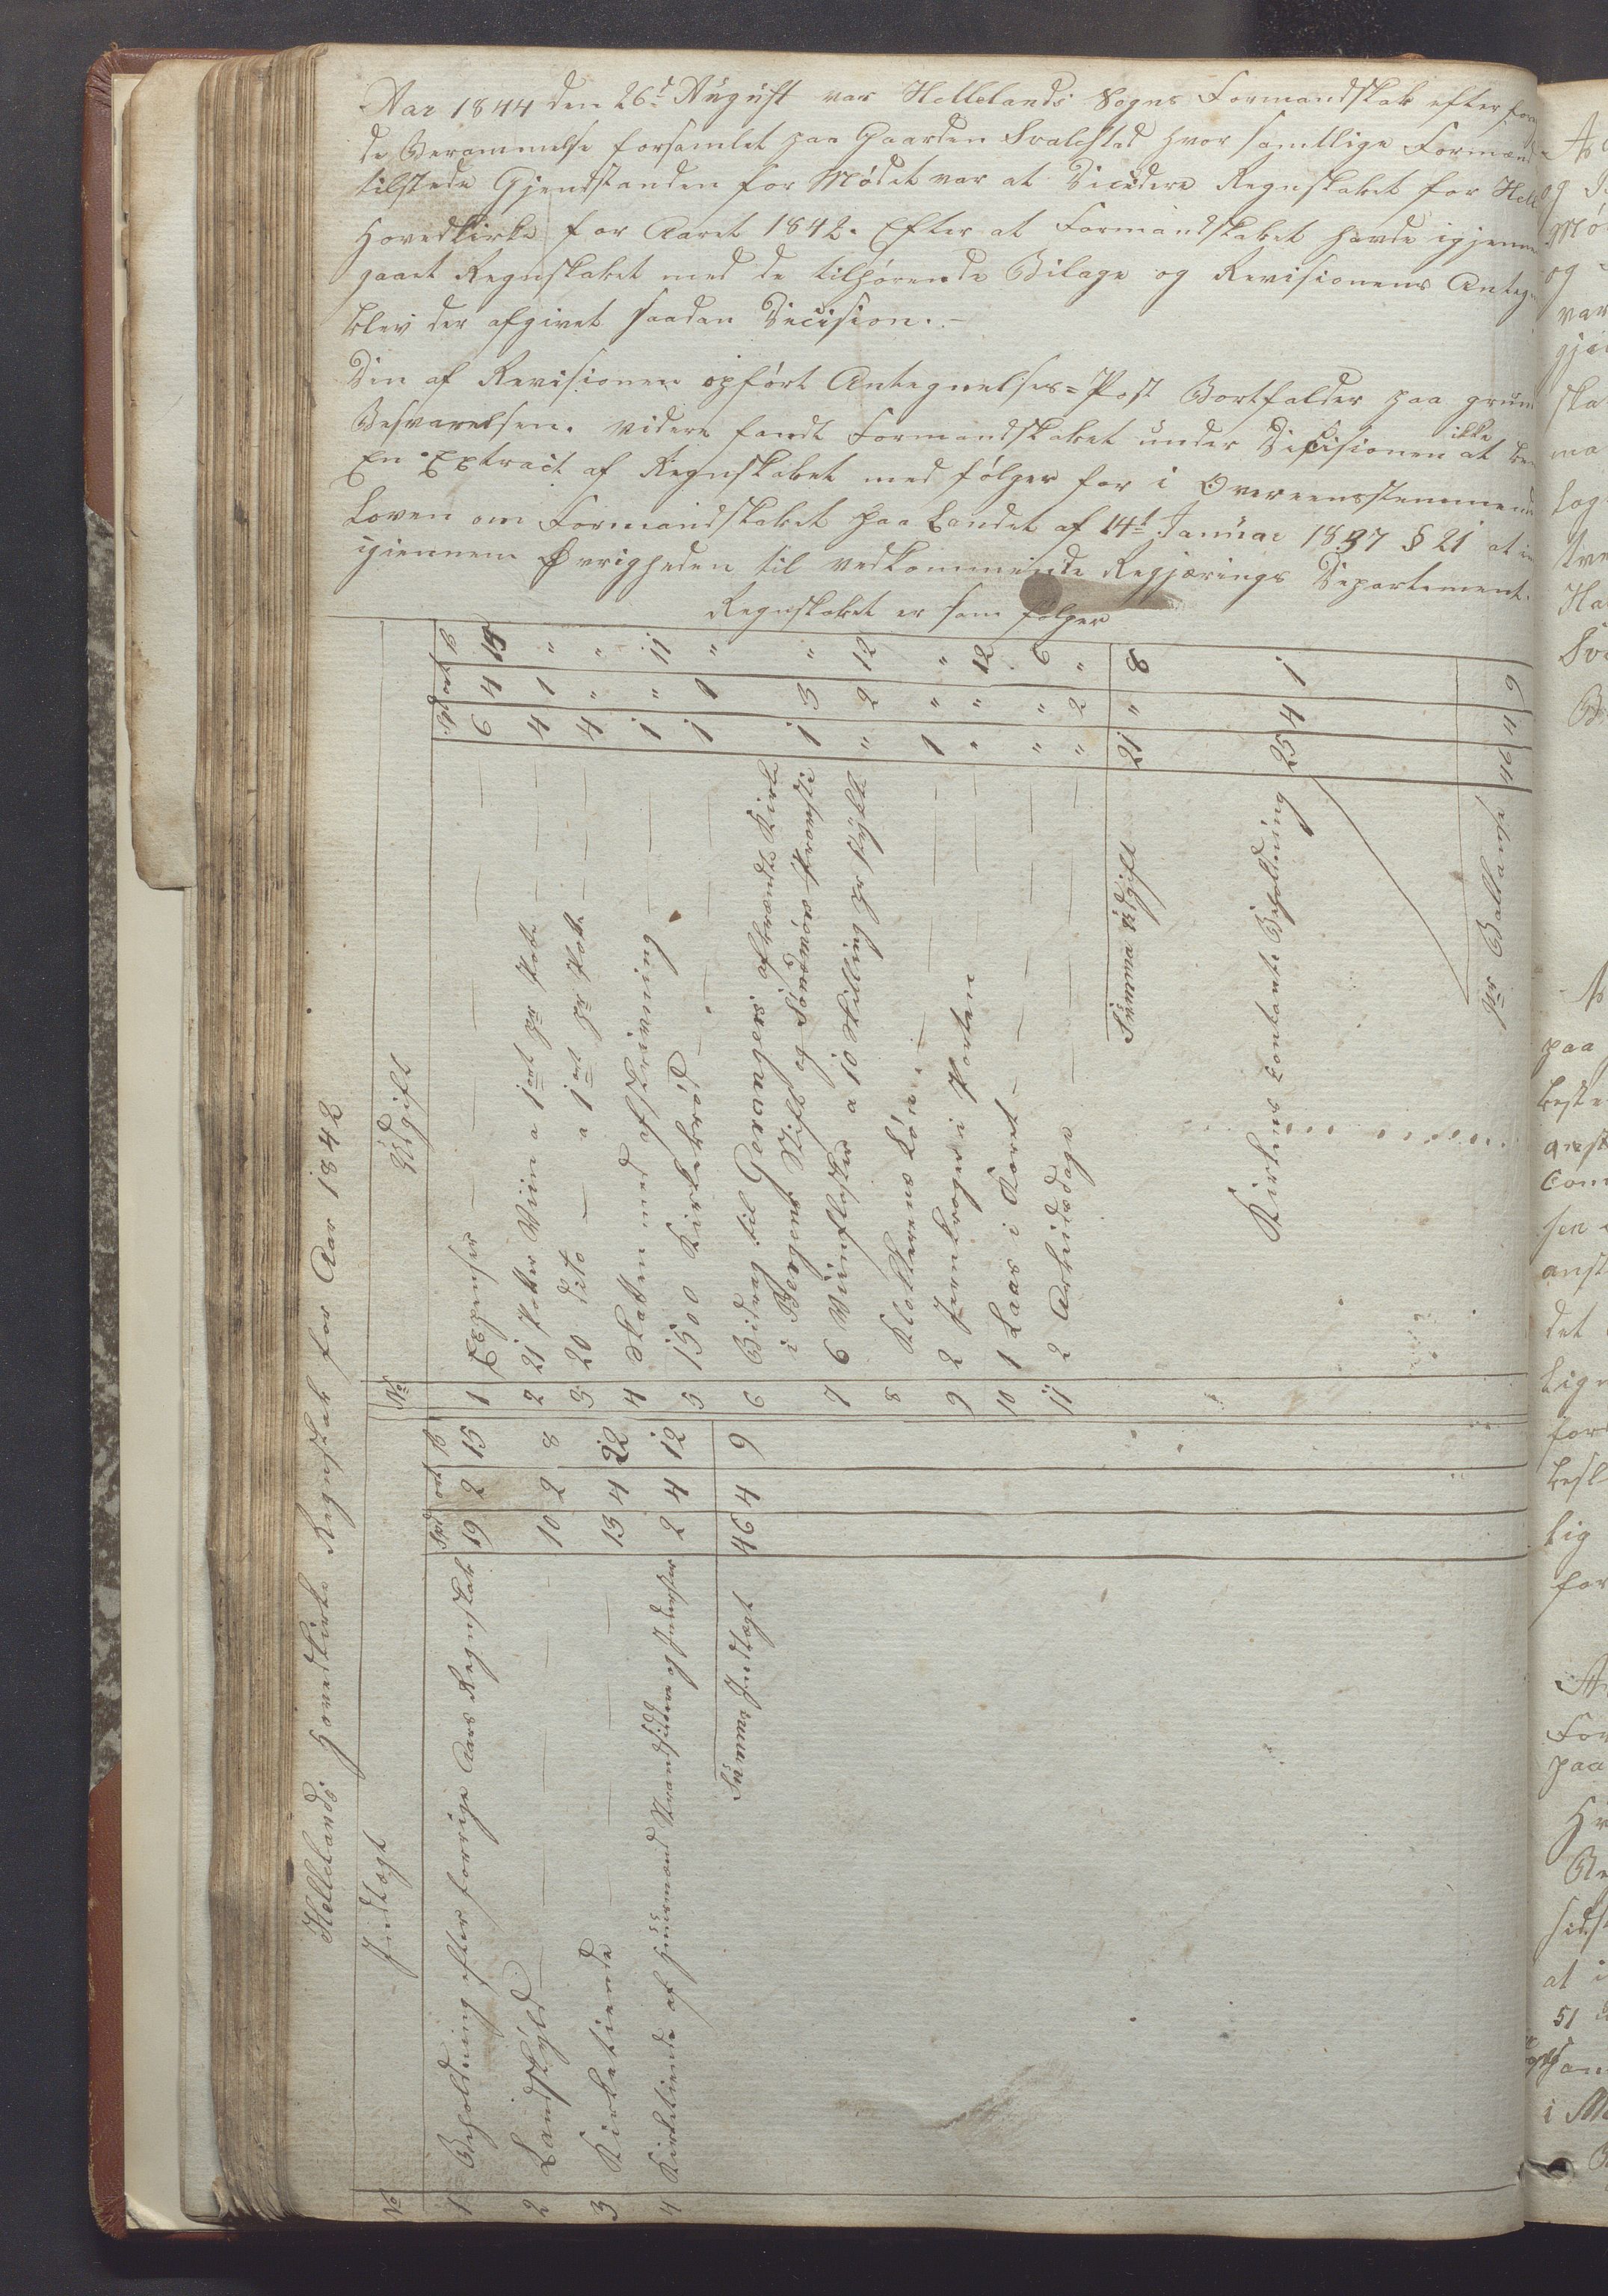 Aar 1844 den 26d August var Hellelands Sogns Formandskab efter
de Berammelse forsamlet paa Gaarden Svalestad hvor samtlige Formænd
tilstede Gjendstanden for Mødet var at Dicidere Regnskabet for Hell
Hovedkirke for Aaret 1842. Efter at Formandskabet havde igjennem
gaaet Regnskabet med de tilhørende Bilage og Revisionens Anteg
blev der afgivet saadan Decision. –
Den af Revisionen opført Antegnelses=Post Bortfalder paa grund
Besvarelsen. videre fandt Formandskabet under Desisionen ikke at be
En Extract af Regnskabet med følger for i Overeensstemmende
Loven om Formandskabet paa Landet af 14de Januar 1837 § 21 at in
igiennem Øvrigheden til vedkommende Regjærings Departement.
Regnskabet er som følger
Hellelands Hovedkirke Regnskab for Aar 1842
Indtægt
No Spd ort ß
1 Beholdning efter forrige Aars Regnskab 19 2 15
2 Landskyld 10 2 8
3 Kirketiende 13 4 22
4 Kirketiende af Huusmænd Strandsidere og Inderster 2 4 12
Summa Indtægt 46 4 9
Udgift
No Spd ort ß
1 Expenser 6 4 15
2 21 Potter Viin a 1 ort pr Potte 4 1 "
3 20 dito – a 1 ort pr Potte 4 " "
4 Skatten med afskrivning 1 " 11
5 1500 Kirkebrød 1 1 "
6 Bidrag til Gevangers afbrændte Kirke
i Bergens Stift og Søndmørs Provstie 1 3 "
7 6 Viinflasker a 10 Skilling pr Stykk " 2 12
8 Klokkerens Løn 1 " "
9 2 Jernkroger i Porten " " 12
10 1 Laas i Koret – " " 6
11 2 Arbeidsdage " 2 "
Summa Udgift 21 " 8
Kirkens Contante Beholdning 25 4 1
pr Ballanse 46 4 9